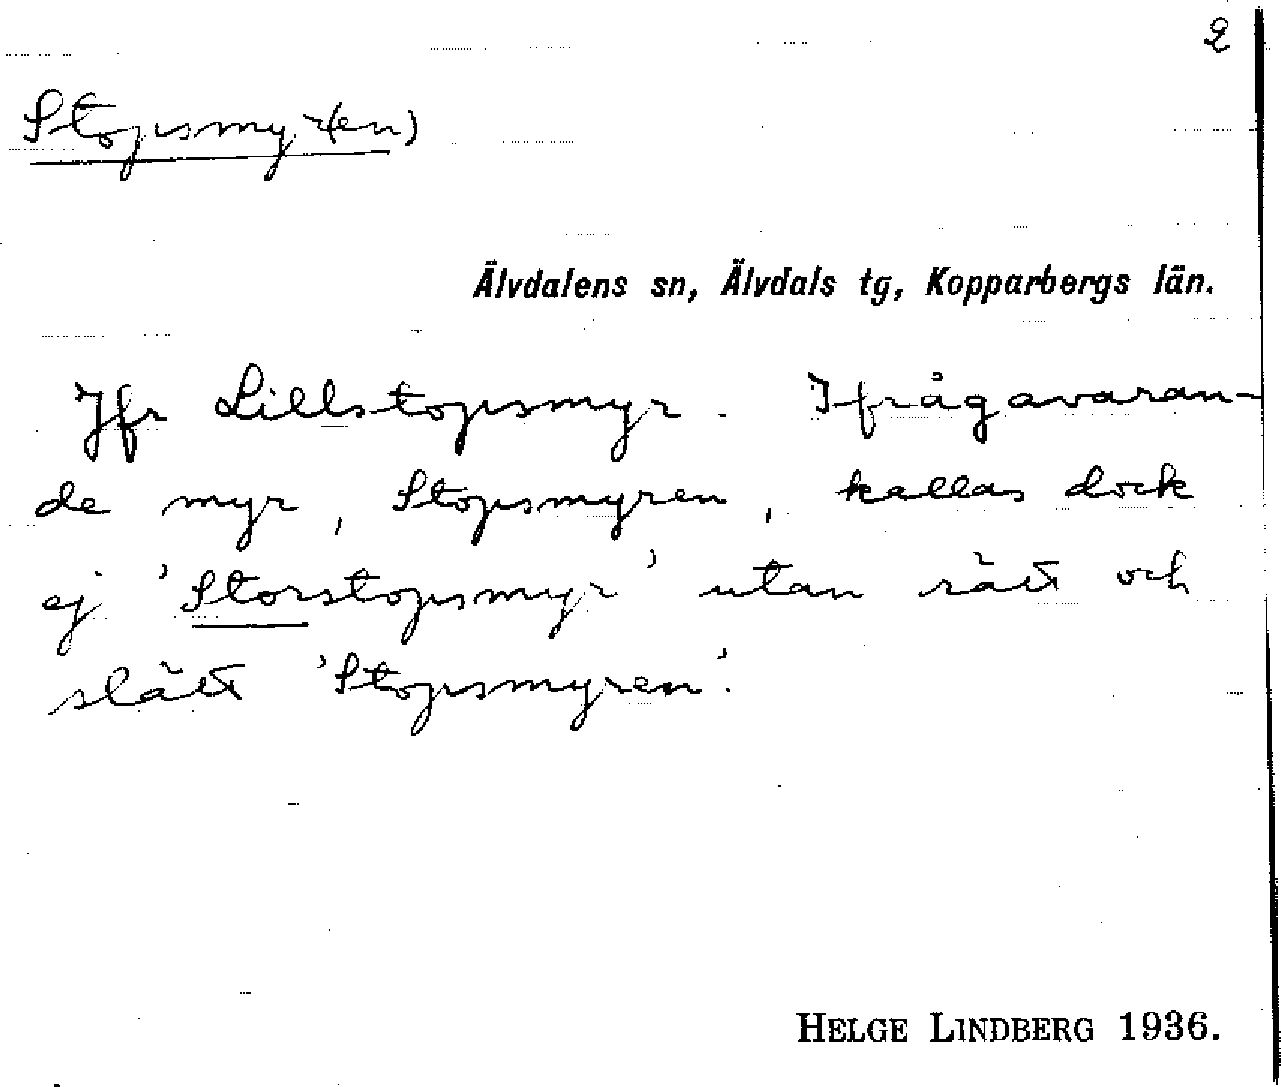 2
Stopsmyr(en)
Älvdalens sn, Älvdals tg, Kopparbergs län.
Jfr Lillstopsmyr. Ifrågavaran-
de myr, Stopsmyren, kallas dock
ej 'Storstopsmyr' utan rätt och
slätt 'Stopsmyren'.
HELGE LINDBERG 1936.